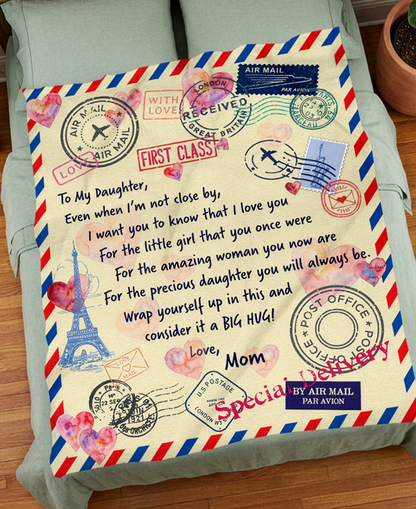 AIR MAIL
PAR AVION
WITH
LOVE
LONDON
RECEIVED
GREAT BRITAIN
AIR MAIL
AIR MAIL
LOVE
FIRST CLASS
To My Daughter,
Even when I'm not close by,
I want you to know that I love you
For the little girl that you once were
For the amazing woman you now are
For the precious daughter you will always be.
Wrap yourself up in this and
consider it a BIG HUG!
Love,
Mom
POST OFFICE
POST OFFICE
Special Delivery
U.S. POSTAGE
LONDON
BY AIR MAIL
PAR AVION